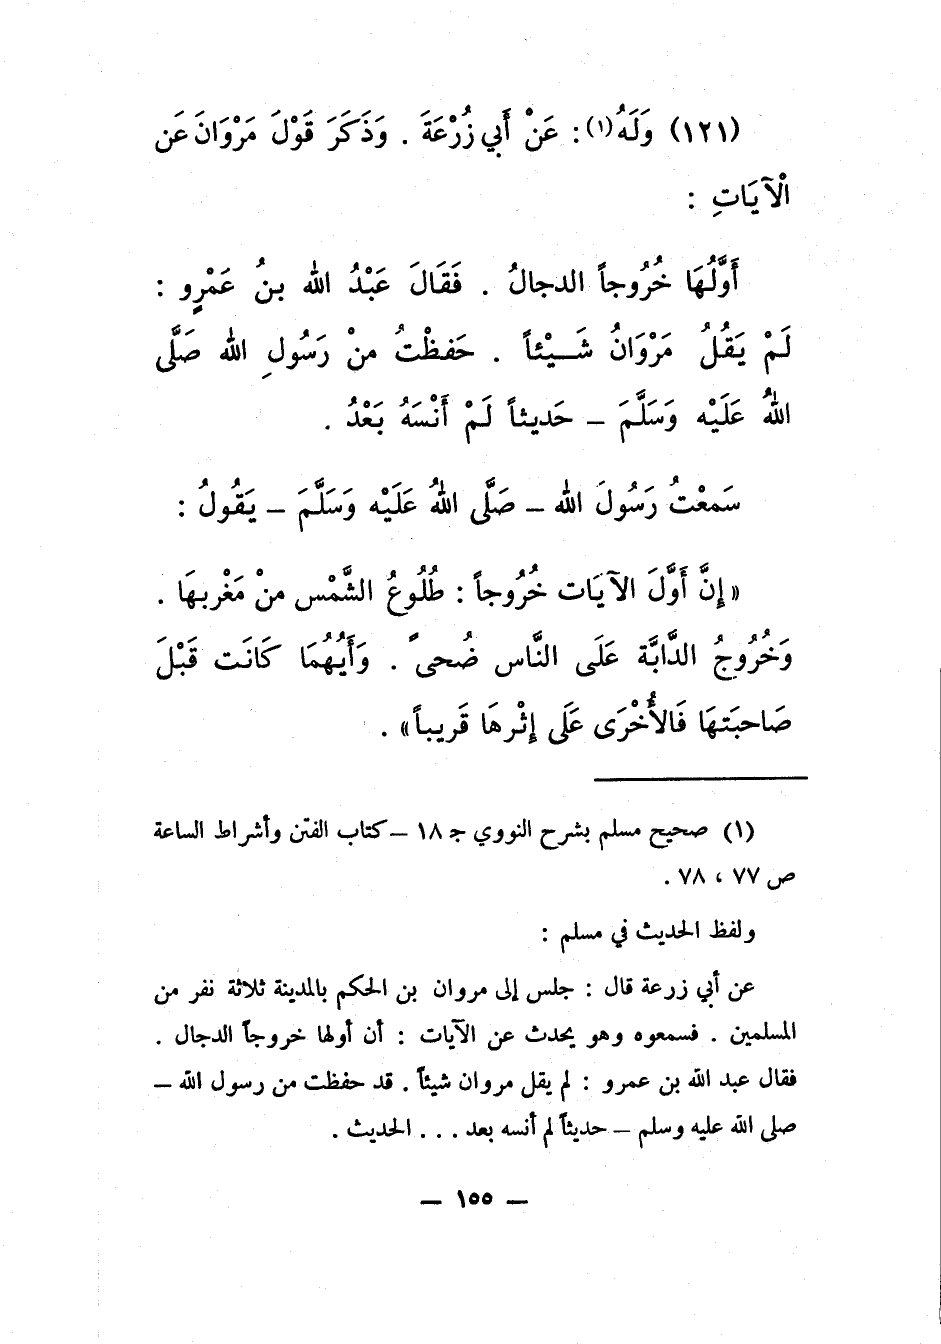 (١٢١) وَلَهُ(١): عَنْ أَبي زُرْعَةَ . وَذَكَرَ قَوْلَ مَرْوَانَ عَن
الْآيَاتِ :
أَوَّلُهَا خُرُوجاً الدجالُ . فَقَالَ عَبْدُ الله بنُ عَمْرٍو :
لَمْ يَقُلُ مَرْوَانُ شَيْئاً . حَفظْتُ منْ رَسُولِ الله صَلَّى
اللهُ عَلَيْه وَسَلَّمَ – حَديثاً لَمْ أَنْسَهُ بَعْدُ .
سَمعْتُ رَسُولَ الله – صَلَّى اللهُ عَلَيْه وَسَلَّمَ – يَقُولُ :
« إِنَّ أَوَّلَ الآيَات خُرُوجاً : طُلُوعُ الشَّمْس منْ مَغْربهَا .
وَخُرُوجُ الدَّابَّة عَلَى النَّاس ضُحىً . وَأَيُهُمَا كَانَت قَبْلَ
صَاحبَتهَا فَالأُخْرَى عَلَى إِثْرهَا قَريباً» .
(١) صحيح مسلم بشرح النووي جـ ١٨ – كتاب الفتن وأشراط الساعة
ص ٧٧ ، ٧٨ .
ولفظ الحديث في مسلم :
عن أبي زرعة قال : جلس إلى مروان بن الحكم بالمدينة ثلاثة نفر من
المسلمين . فسمعوه وهو يحدث عن الآيات : أن أولها خروجاً الدجال .
فقال عبد الله بن عمرو : لم يقل مروان شيئاً . قد حفظت من رسول الله –
صلى الله عليه وسلم – حديثاً لم أنسه بعد . . . الحديث .
– ١٥٥ –